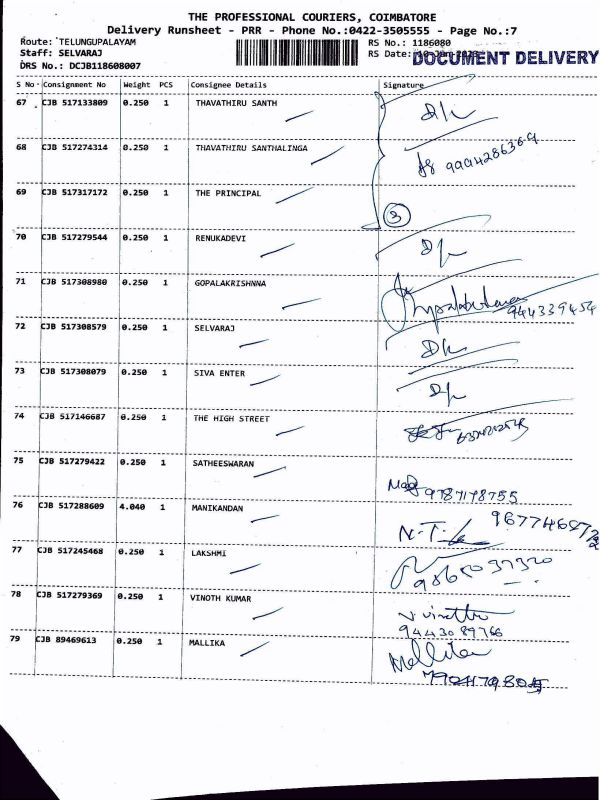 THE PROFESSIONAL COURIERS, COIMBATORE
Delivery Runsheet - PRR - Phone No.:0422-3505555 - Page No.:7
Route: TELUNGUPALAYAM
RS No.: 1186080
Staff: SELVARAJ
RS Date:
DOCUMENT DELIVERY
DRS No.: DCJB118608007
S No Consignment No Weight PCS Consignee Details Signature
67 CJB 517133809 0.250 1 THAVATHIRU SANTH
68 CJB 517274314 0.250 1 THAVATHIRU SANTHALINGA
69 CJB 517317172 0.250 1 THE PRINCIPAL
3
70 CJB 517279544 0.250 1 RENUKADEVI
71 CJB 517308980 0.250 1 GOPALAKRISHNNA
944339454
72 CJB 517308579 0.250 1 SELVARAJ
73 CJB 517308079 0.250 1 SIVA ENTER
74 CJB 517146687 0.250 1 THE HIGH STREET
75 CJB 517279422 0.250 1 SATHEESWARAN
9787178755
76 CJB 517288609 4.040 1 MANIKANDAN
77 CJB 517245468 0.250 1 LAKSHMI
78 CJB 517279369 0.250 1 VINOTH KUMAR
9443089766
79 CJB 89469613 0.250 1 MALLIKA